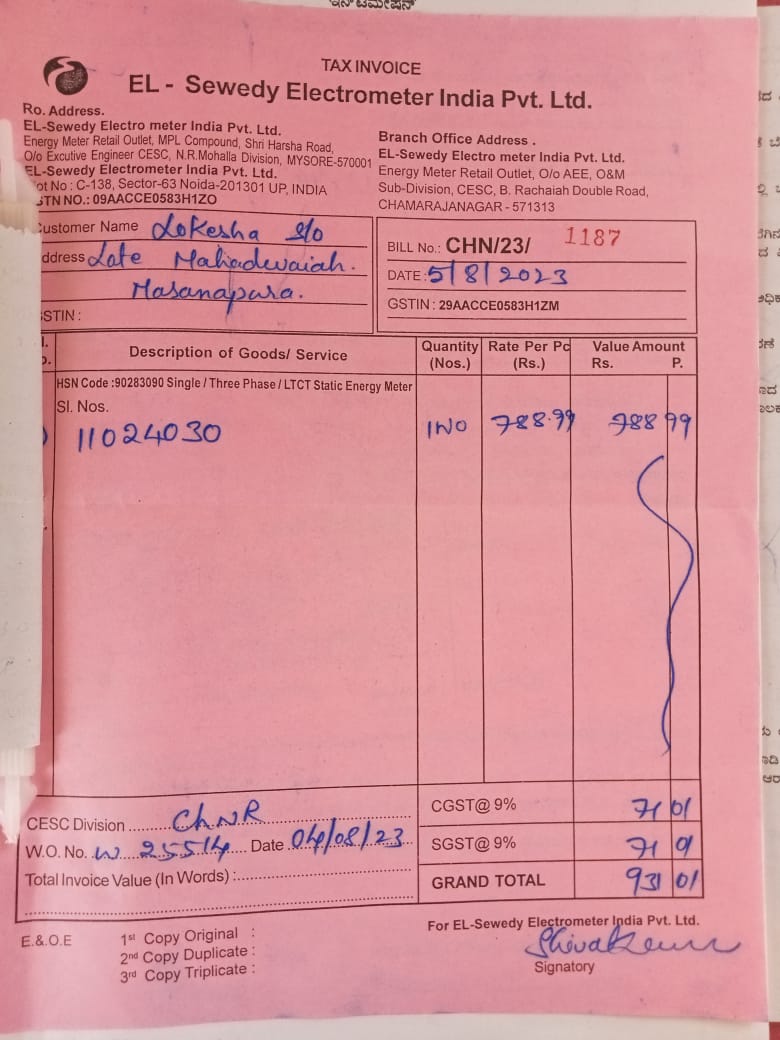 TAX INVOICE
EL - Sewedy Electrometer India Pvt. Ltd.
Ro. Address.
EL-Sewedy Electro meter India Pvt. Ltd.
Energy Meter Retail Outlet, MPL Compound, Shri Harsha Road,
O/o Excutive Engineer CESC, N.R.Mohalla Division, MYSORE-570001
EL-Sewedy Electrometer India Pvt. Ltd.
ot No : C-138, Sector-63 Noida-201301 UP, INDIA
STN NO.: 09AACCE0583H1ZO
Branch Office Address .
EL-Sewedy Electro meter India Pvt. Ltd.
Energy Meter Retail Outlet, O/o AEE, O&M
Sub-Division, CESC, B. Rachaiah Double Road,
CHAMARAJANAGAR - 571313
ustomer Name Lokesha S/o
ddress Late Mahadevaiah.
Masanapura.
STIN :
BILL No.: CHN/23/ 1187
DATE : 5/8/2023
GSTIN : 29AACCE0583H1ZM
Description of Goods/ Service Quantity (Nos.) Rate Per Pc (Rs.) Value Amount Rs. P.
HSN Code :90283090 Single / Three Phase / LTCT Static Energy Meter
Sl. Nos.
11024030 1NO 788.99 788 99
CESC Division ChNR CGST@ 9% 71 01
W.O. No. W 25514 Date 04/08/23 SGST@ 9% 71 01
Total Invoice Value (In Words) : GRAND TOTAL 931 01
E.& O.E
1st Copy Original :
2nd Copy Duplicate :
3rd Copy Triplicate :
For EL-Sewedy Electrometer India Pvt. Ltd.
Signatory